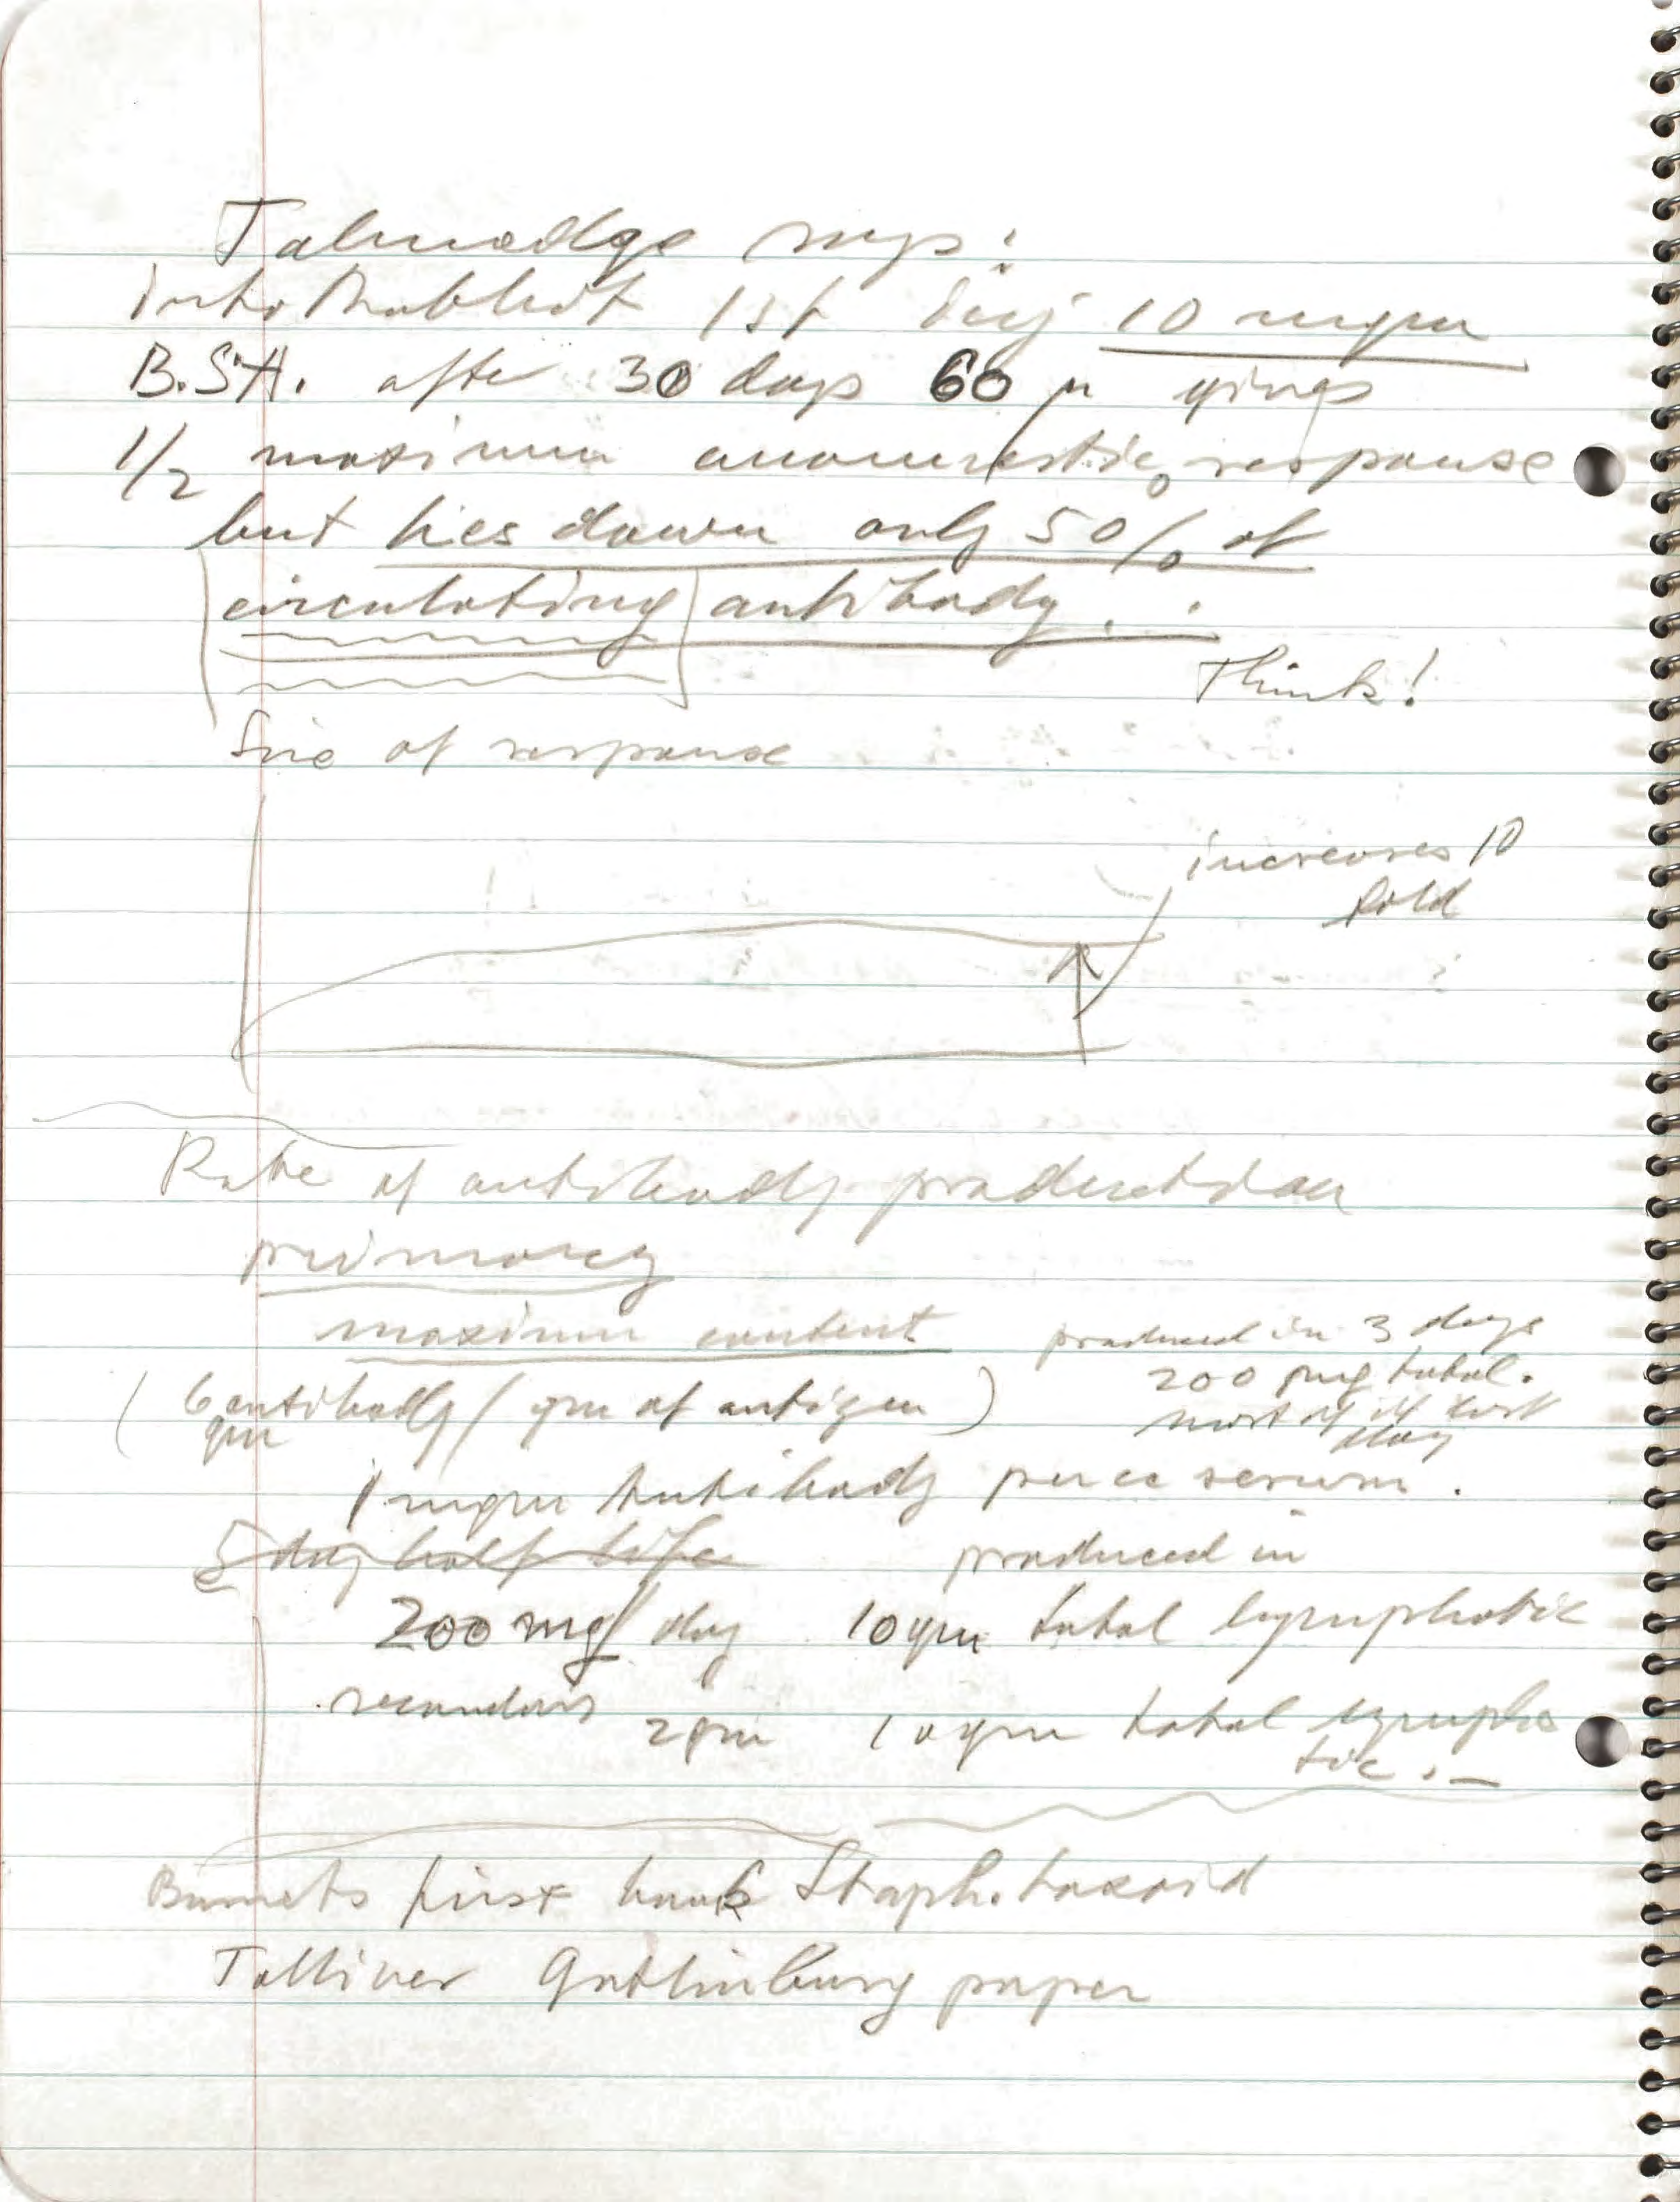 Talmadge says:
into Rabbit 1st inj 10 mgm
B.S.A. after 30 days 60 μ gives
1/2 maximum anamnestic response
but ties down only 50% of
circulating antibody.
Think!
Size of response
increases 10
fold
Rate of antibody production
primary
maximum content
produced in 3 days
200 mg total.
most of it last
day
(6 antibody / gm of antigen)
gm
1 mgm antibody per cc serum.
5 day half life
produced in
200 mg/day 10 gm total lymphatic
secondary 2 gm 10 gm total lympha
tic.
Burnets first book Staph. toxoid
Talliner Gatlinburg paper